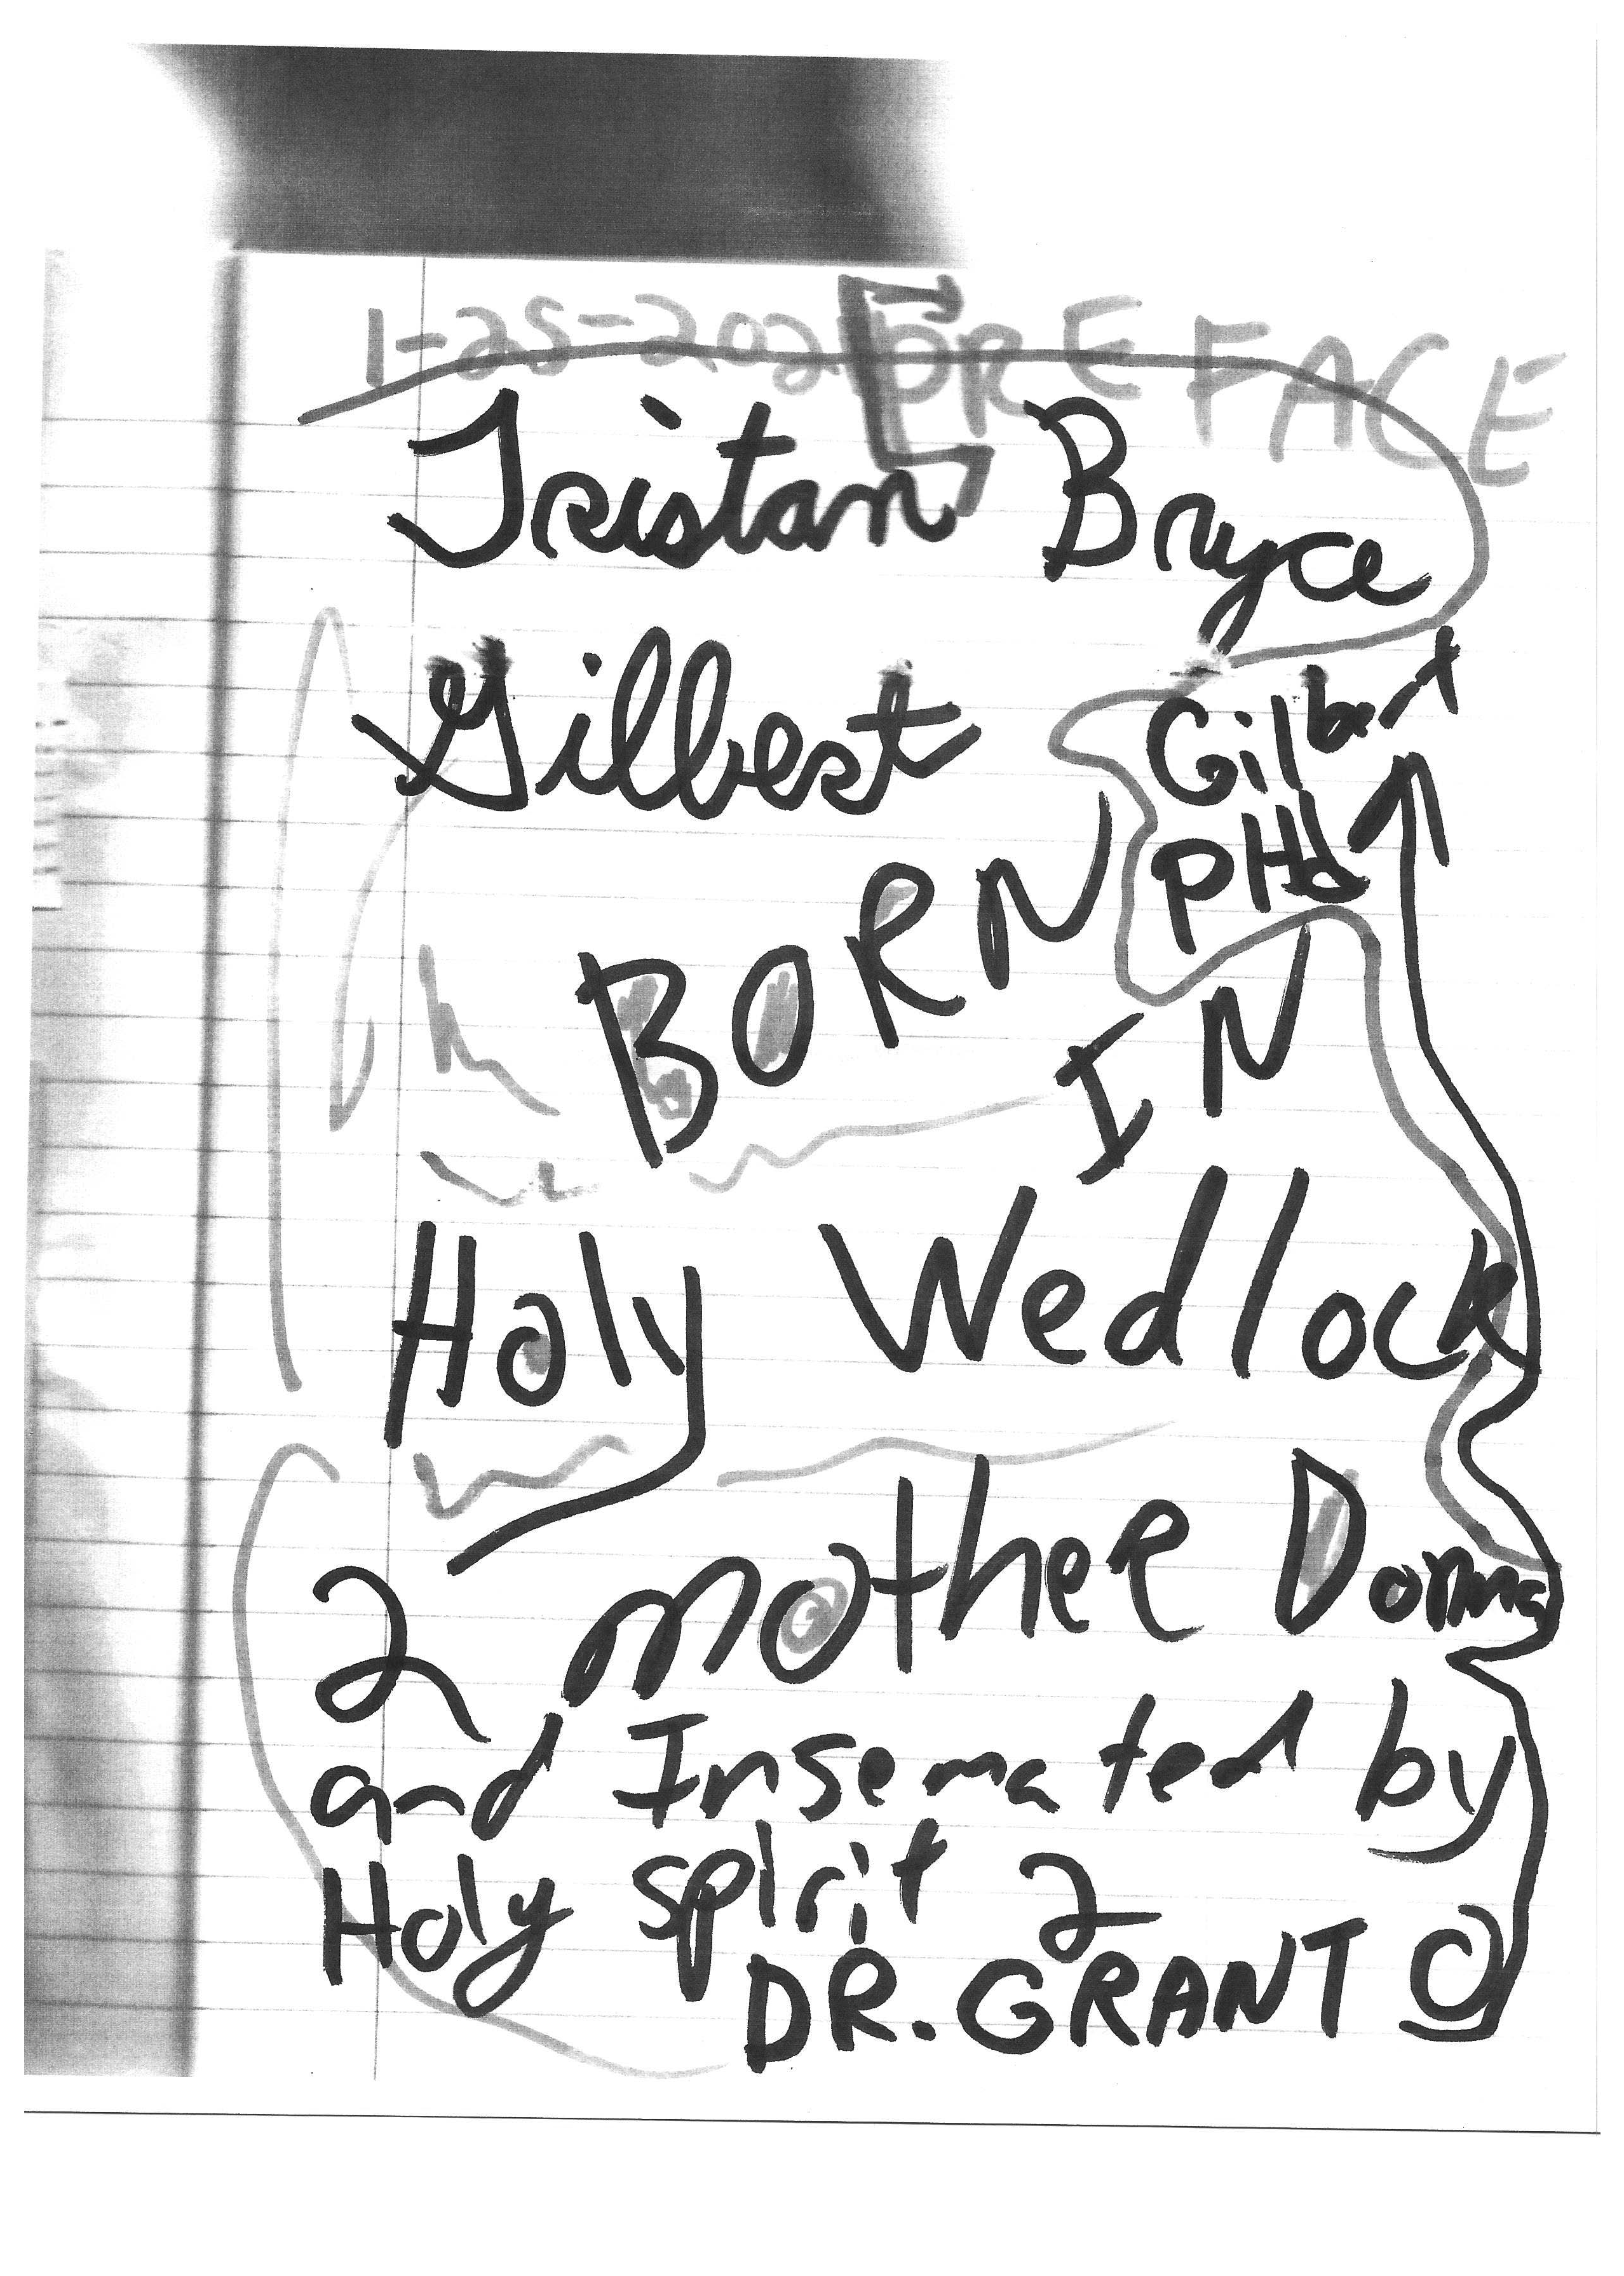 1-25-202 PREFACE
Tristan Bryce
Gilbert
Gilbert
PHd
BORN
IN
Holy Wedlock
2 mother Donna
and Insemated by
Holy spirit 2
DR. GRANT ©